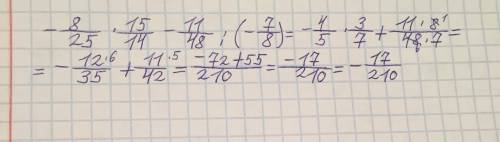 - 8/25 · 15/14 - 11/48 : (- 7/8) = - 4/5 · 3/7 + 11 · 8¹/48₆ · 7 =
= - 12·⁶/35 + 11·⁵/42 = -72+55/210 = -17/210 = - 17/210